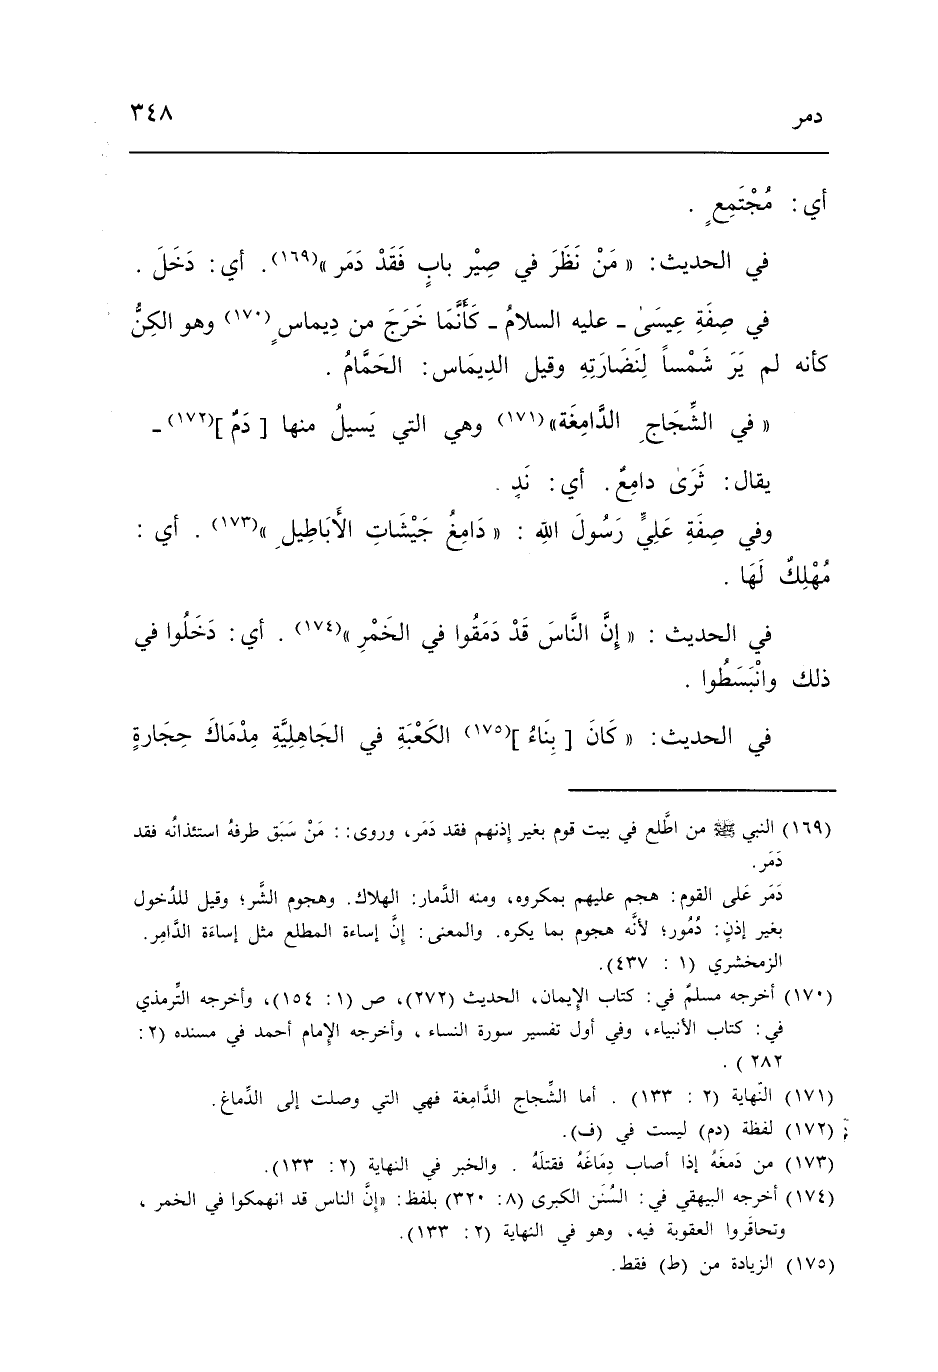 دمر ٣٤٨
أي: مُجْتَمِعٍ .
في الحديث: « مَنْ نَظَرَ في صِيْرِ بابٍ فَقَدْ دَمَر »(١٦٩). أي: دَخَلَ .
في صِفَةِ عِيسَىٰ ـ عليه السلامُ ـ كَأَنَّمَا خَرَجَ من دِيماسٍ(١٧٠) وهو الكِنُّ
كأنه لم يَرَ شَمْساً لِنَضَارَتِهِ وقيل الدِيمَاس: الحَمَّامُ .
« في الشِّجَاجِ الدَّامِغَة»(١٧١) وهي التي يَسيلُ منها [ دَمٌ ](١٧٢) ـ
يقال: ثَرَىٰ دامِعٌ. أي: نَدٍ .
وفي صِفَةِ عَلِيٍّ رَسُولَ اللهِ : « دَامِغُ جَيْشَاتِ الأَبَاطِيلِ »(١٧٣) . أي :
مُهْلِكٌ لَهَا .
في الحديث : « إِنَّ النَّاسَ قَدْ دَمَقُوا في الخَمْرِ »(١٧٤) . أي: دَخَلُوا في
ذلك وانْبَسَطُوا .
في الحديث: « كَانَ [ بِنَاءُ ](١٧٥) الكَعْبَةِ في الجَاهِلِيَّةِ مِدْمَاكَ حِجَارةٍ
(١٦٩) النبي ﷺ من اطَّلع في بيت قوم بغير إذنهم فقد دَمَر، وروى: : مَنْ سَبَق طرفهُ استئذانُه فقد
دَمَر.
دَمَر عَلى القوم: هجم عليهم بمكروه، ومنه الدَّمار: الهلاك. وهجوم الشَّر؛ وقيل للدُخول
بغير إذنٍ: دُمُور؛ لأنَّه هجوم بما يكره. والمعنى: إنَّ إساءة المطلع مثل إساءَة الدَّامِر.
الزمخشري (١ : ٤٣٧).
(١٧٠) أخرجه مسلمٌ في: كتاب الإيمان، الحديث (٢٧٢)، ص (١ : ١٥٤)، وأخرجه التِّرمذي
في: كتاب الأنبياء، وفي أول تفسير سورة النساء ، وأخرجه الإمام أحمد في مسنده (٢ :
٢٨٢ ) .
(١٧١) النّهاية (٢ : ١٣٣) . أما الشِّجاج الدَّامِغة فهي التي وصلت إلى الدِّماغ.
(١٧٢) لفظة (دم) ليست في (ف).
(١٧٣) من دَمغَهُ إذا أصاب دِمَاغَهُ فقتلَهُ . والخبر في النهاية (٢ : ١٣٣).
(١٧٤) أخرجه البيهقي في: السُنَن الكبرى (٨: ٣٢٠) بلفظ: «إِنَّ الناس قد انهمكوا في الخمر ،
وتحاقَروا العقوبة فيه، وهو في النهاية (٢ : ١٣٣).
(١٧٥) الزيادة من (ط) فقط.